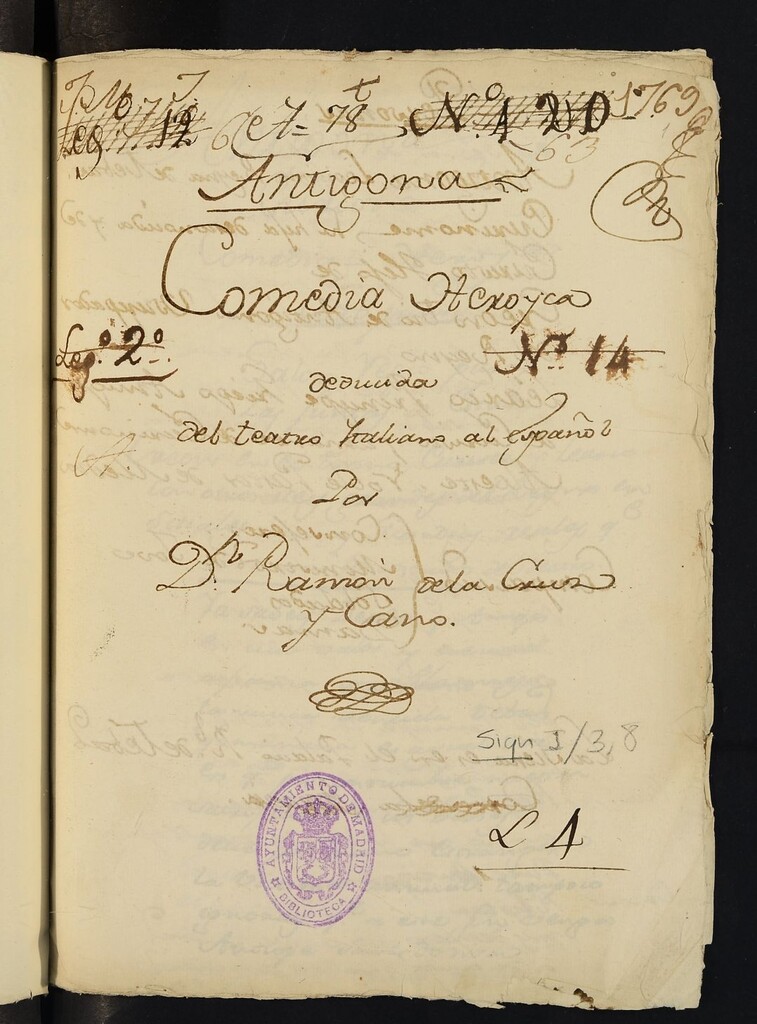 1769
Nº 4 20
63
Antigona
Comedia Heroyca
Legº 2º
Nº 14
deducida
del teatro Italiano al español
Por
Dn. Ramón de la Cruz
y Cano.
Sign 1/3, 8
L 4
AYUNTAMIENTO DE MADRID
BIBLIOTECA